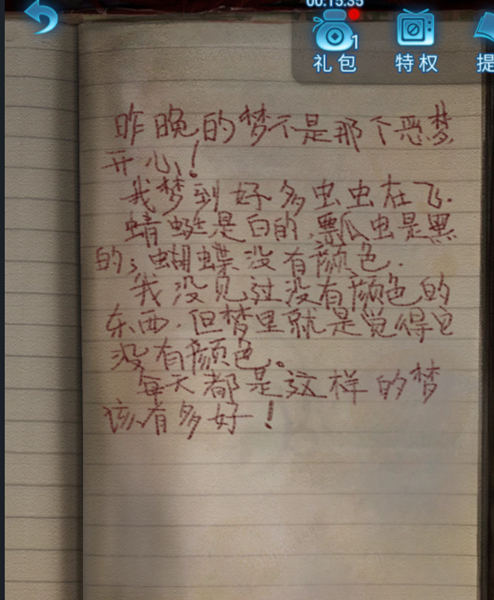 00:15:35
1
礼包
特权
提
昨晚的梦不是那个恶梦
开心!
我梦到好多虫虫在飞.
蜻蜓是白的,瓢虫是黑
的;蝴蝶没有颜色.
我没见过没有颜色的
东西.但梦里就是觉得它
没有颜色。
每天都是这样的梦
该有多好!